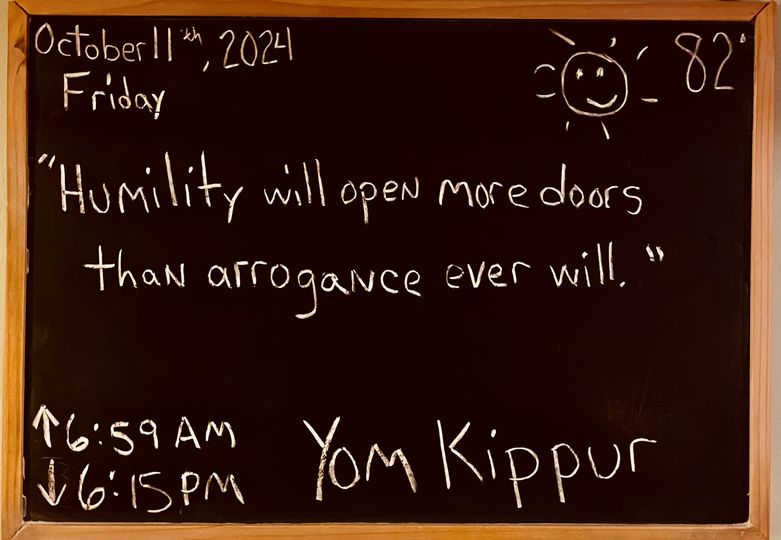 October 11th, 2024
Friday
82°
"Humility will open more doors
than arrogance ever will."
↑6:59 AM
↓6:15 PM
Yom Kippur